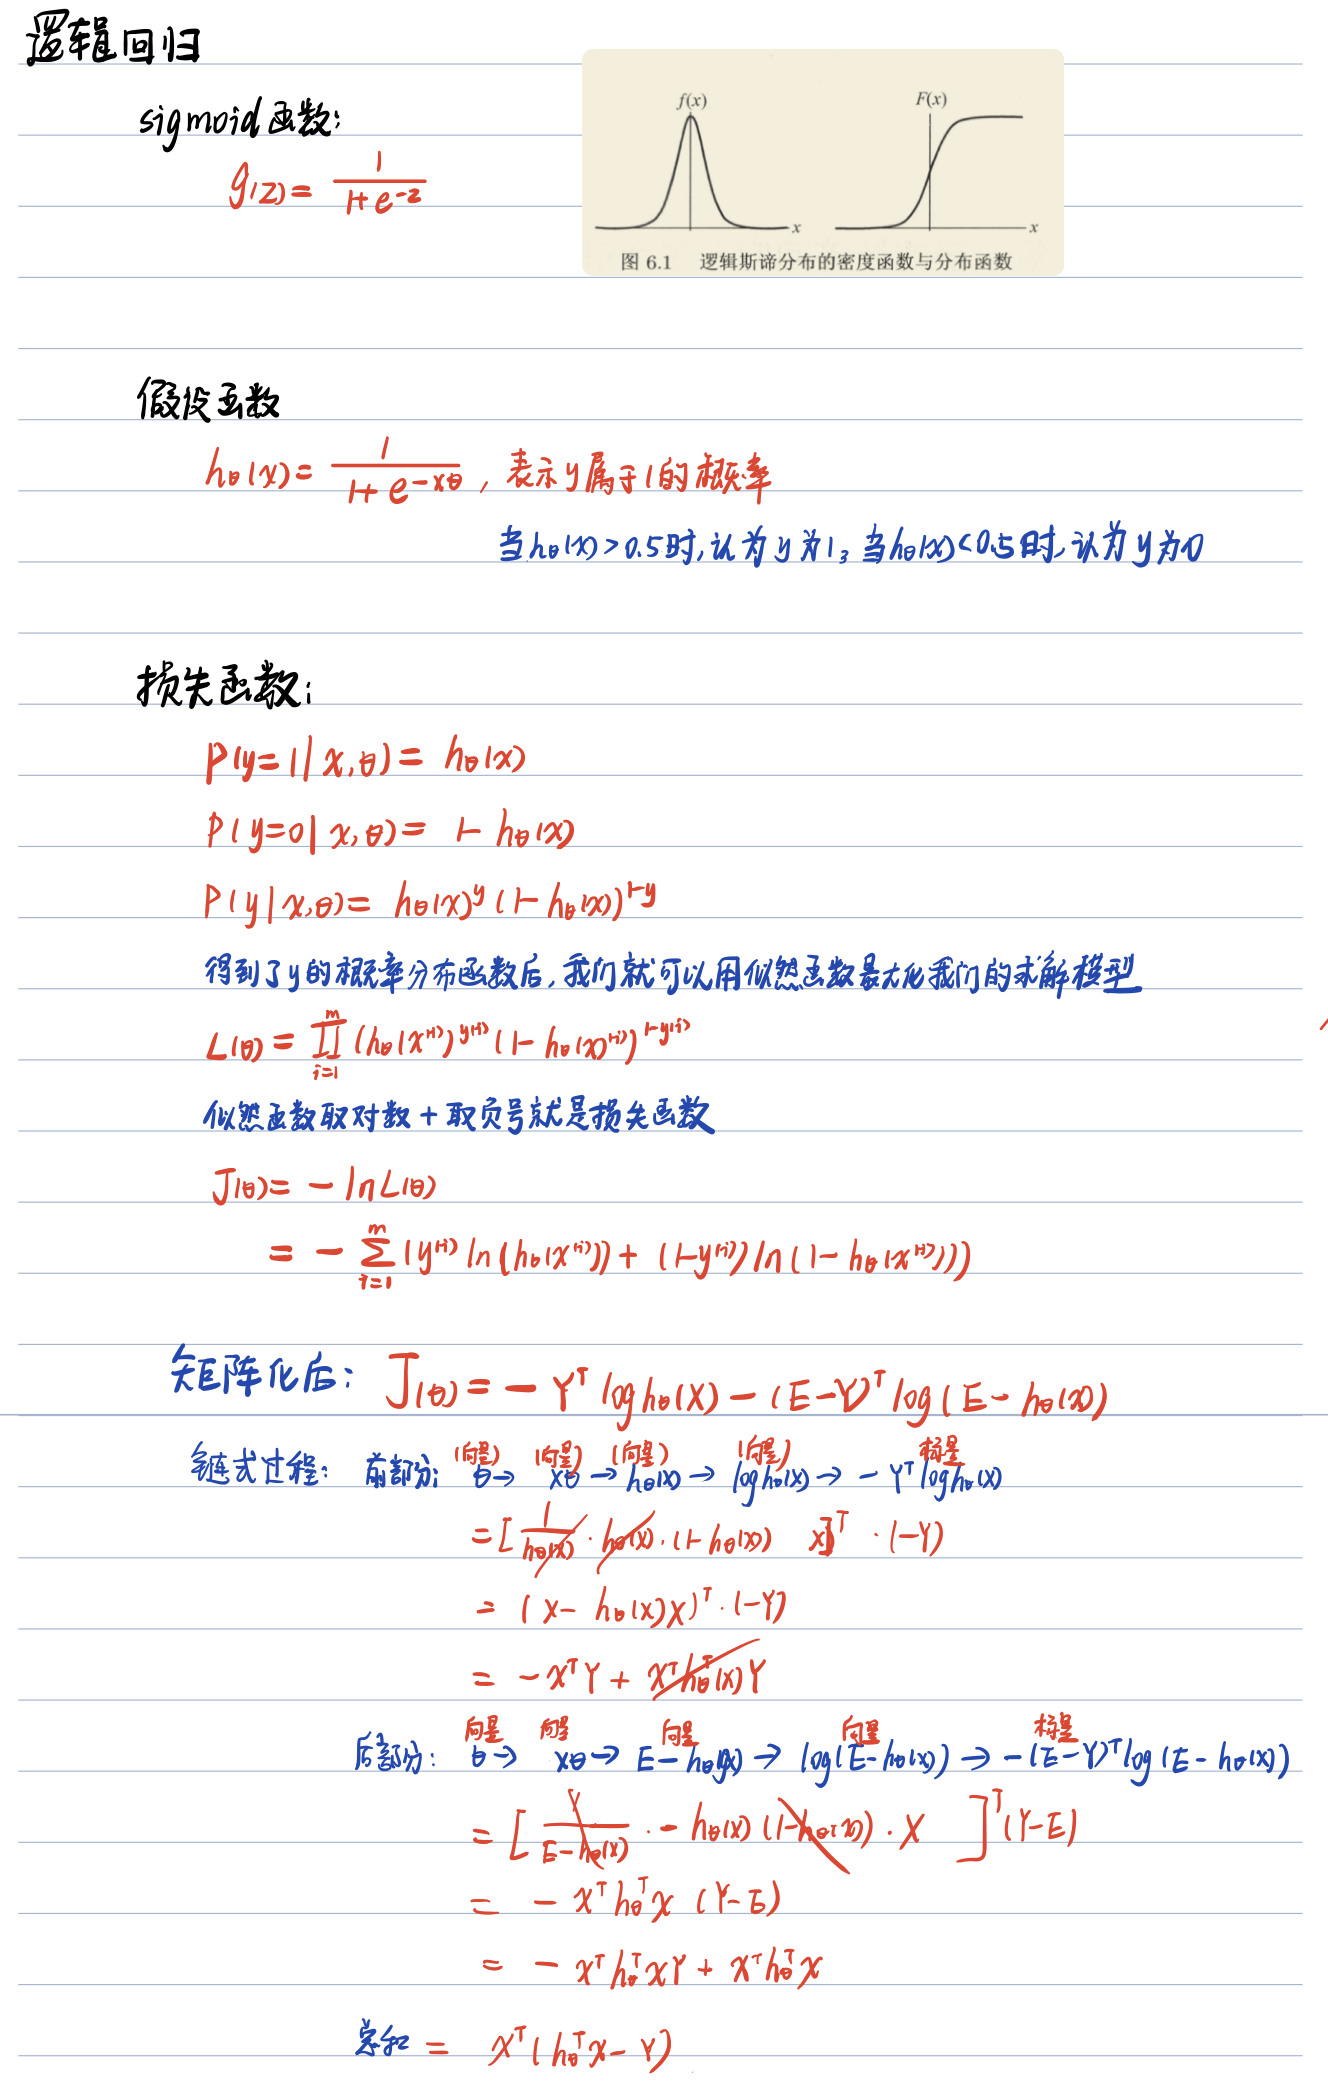 逻辑回归
sigmoid函数:
g(z) = 1/(1+e^-z)
f(x)
F(x)
x
x
图 6.1 逻辑斯谛分布的密度函数与分布函数
假设函数
hθ(x) = 1/(1+e^-xθ), 表示y属于1的概率
当hθ(x)>0.5时,认为y为1; 当hθ(x)<0.5时,认为y为0
损失函数:
P(y=1|x,θ) = hθ(x)
P(y=0|x,θ) = 1-hθ(x)
P(y|x,θ) = hθ(x)^y (1-hθ(x))^1-y
得到了y的概率分布函数后,我们就可以用似然函数最大化我们的求解模型
L(θ) = ∏_{i=1}^m (hθ(x^(i)))^y^(i) (1-hθ(x)^(i))^1-y^(i)
似然函数取对数+取负号就是损失函数
J(θ) = -lnL(θ)
= -∑_{i=1}^m (y^(i) ln(hθ(x^(i))) + (1-y^(i)) ln(1-hθ(x^(i))))
矩阵化后: J(θ) = -Y^T log hθ(X) - (E-Y)^T log(E-hθ(x))
(向量) (向量) (向量) (向量) 标量
链式过程: 前部分: θ → xθ → hθ(x) → log hθ(x) → -Y^T log hθ(x)
= [1/hθ(x) · hθ(x) · (1-hθ(x)) x]^T · (-Y)
= (X-hθ(x)X)^T · (-Y)
= -X^T Y + X^T hθ^T(x) Y
向量 向量 向量 向量 标量
后部分: θ → xθ → E-hθ(x) → log(E-hθ(x)) → -(E-Y)^T log(E-hθ(x))
= [1/(E-hθ(x)) · -hθ(x)(1-hθ(x)) · X]^T (Y-E)
= -X^T hθ^T x (Y-E)
= -X^T hθ^T xY + X^T hθ^T x
总和 = X^T(hθ^T x - Y)